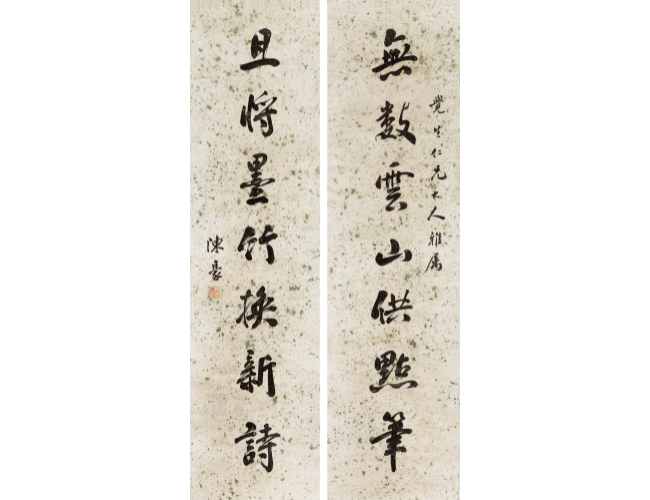 覺生仁兄大人雅属
無數雲山供點筆
且將墨竹換新詩
陳豪